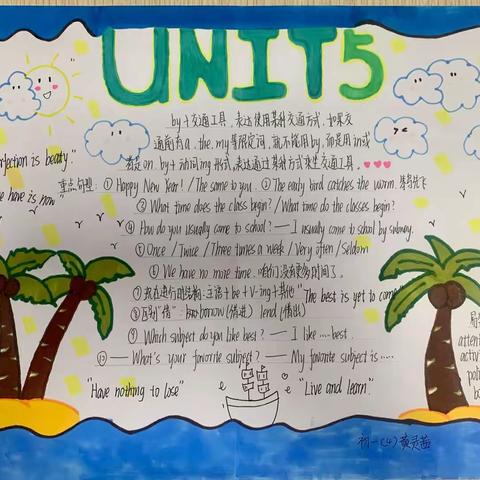 UNIT5
by+交通工具,表达使用某种交通方式,如果交
通前有a、the、my等限定词,就不能用by,而是用in或
者是on. by+动词ing形式,表达通过某种方式来坐交通工具。
perfection is beauty."
We have is now"
重点句型: ① Happy New Year! / The same to you. ② The early bird catches the worm. 笨鸟先飞
③ What time does the class begin? / What time do the classes begin?
④ How do you usually come to school? — I usually come to school by subway.
⑤ Once / Twice / Three times a week / Very often / Seldom
⑥ We have no more time. 咱们没有更多时间了。
⑦ 现在进行时结构:主语+be+V-ing+其他
"The best is yet to come"
⑧ 区别"借": borrow (借进) lend (借出)
⑨ Which subject do you like best? — I like .... best.
⑩ — What's your favorite subject? — My favorite subject is .....
"Have nothing to lose"
"Live and learn."
atten
activi
poli
bo
初一(4) 黄灵茜